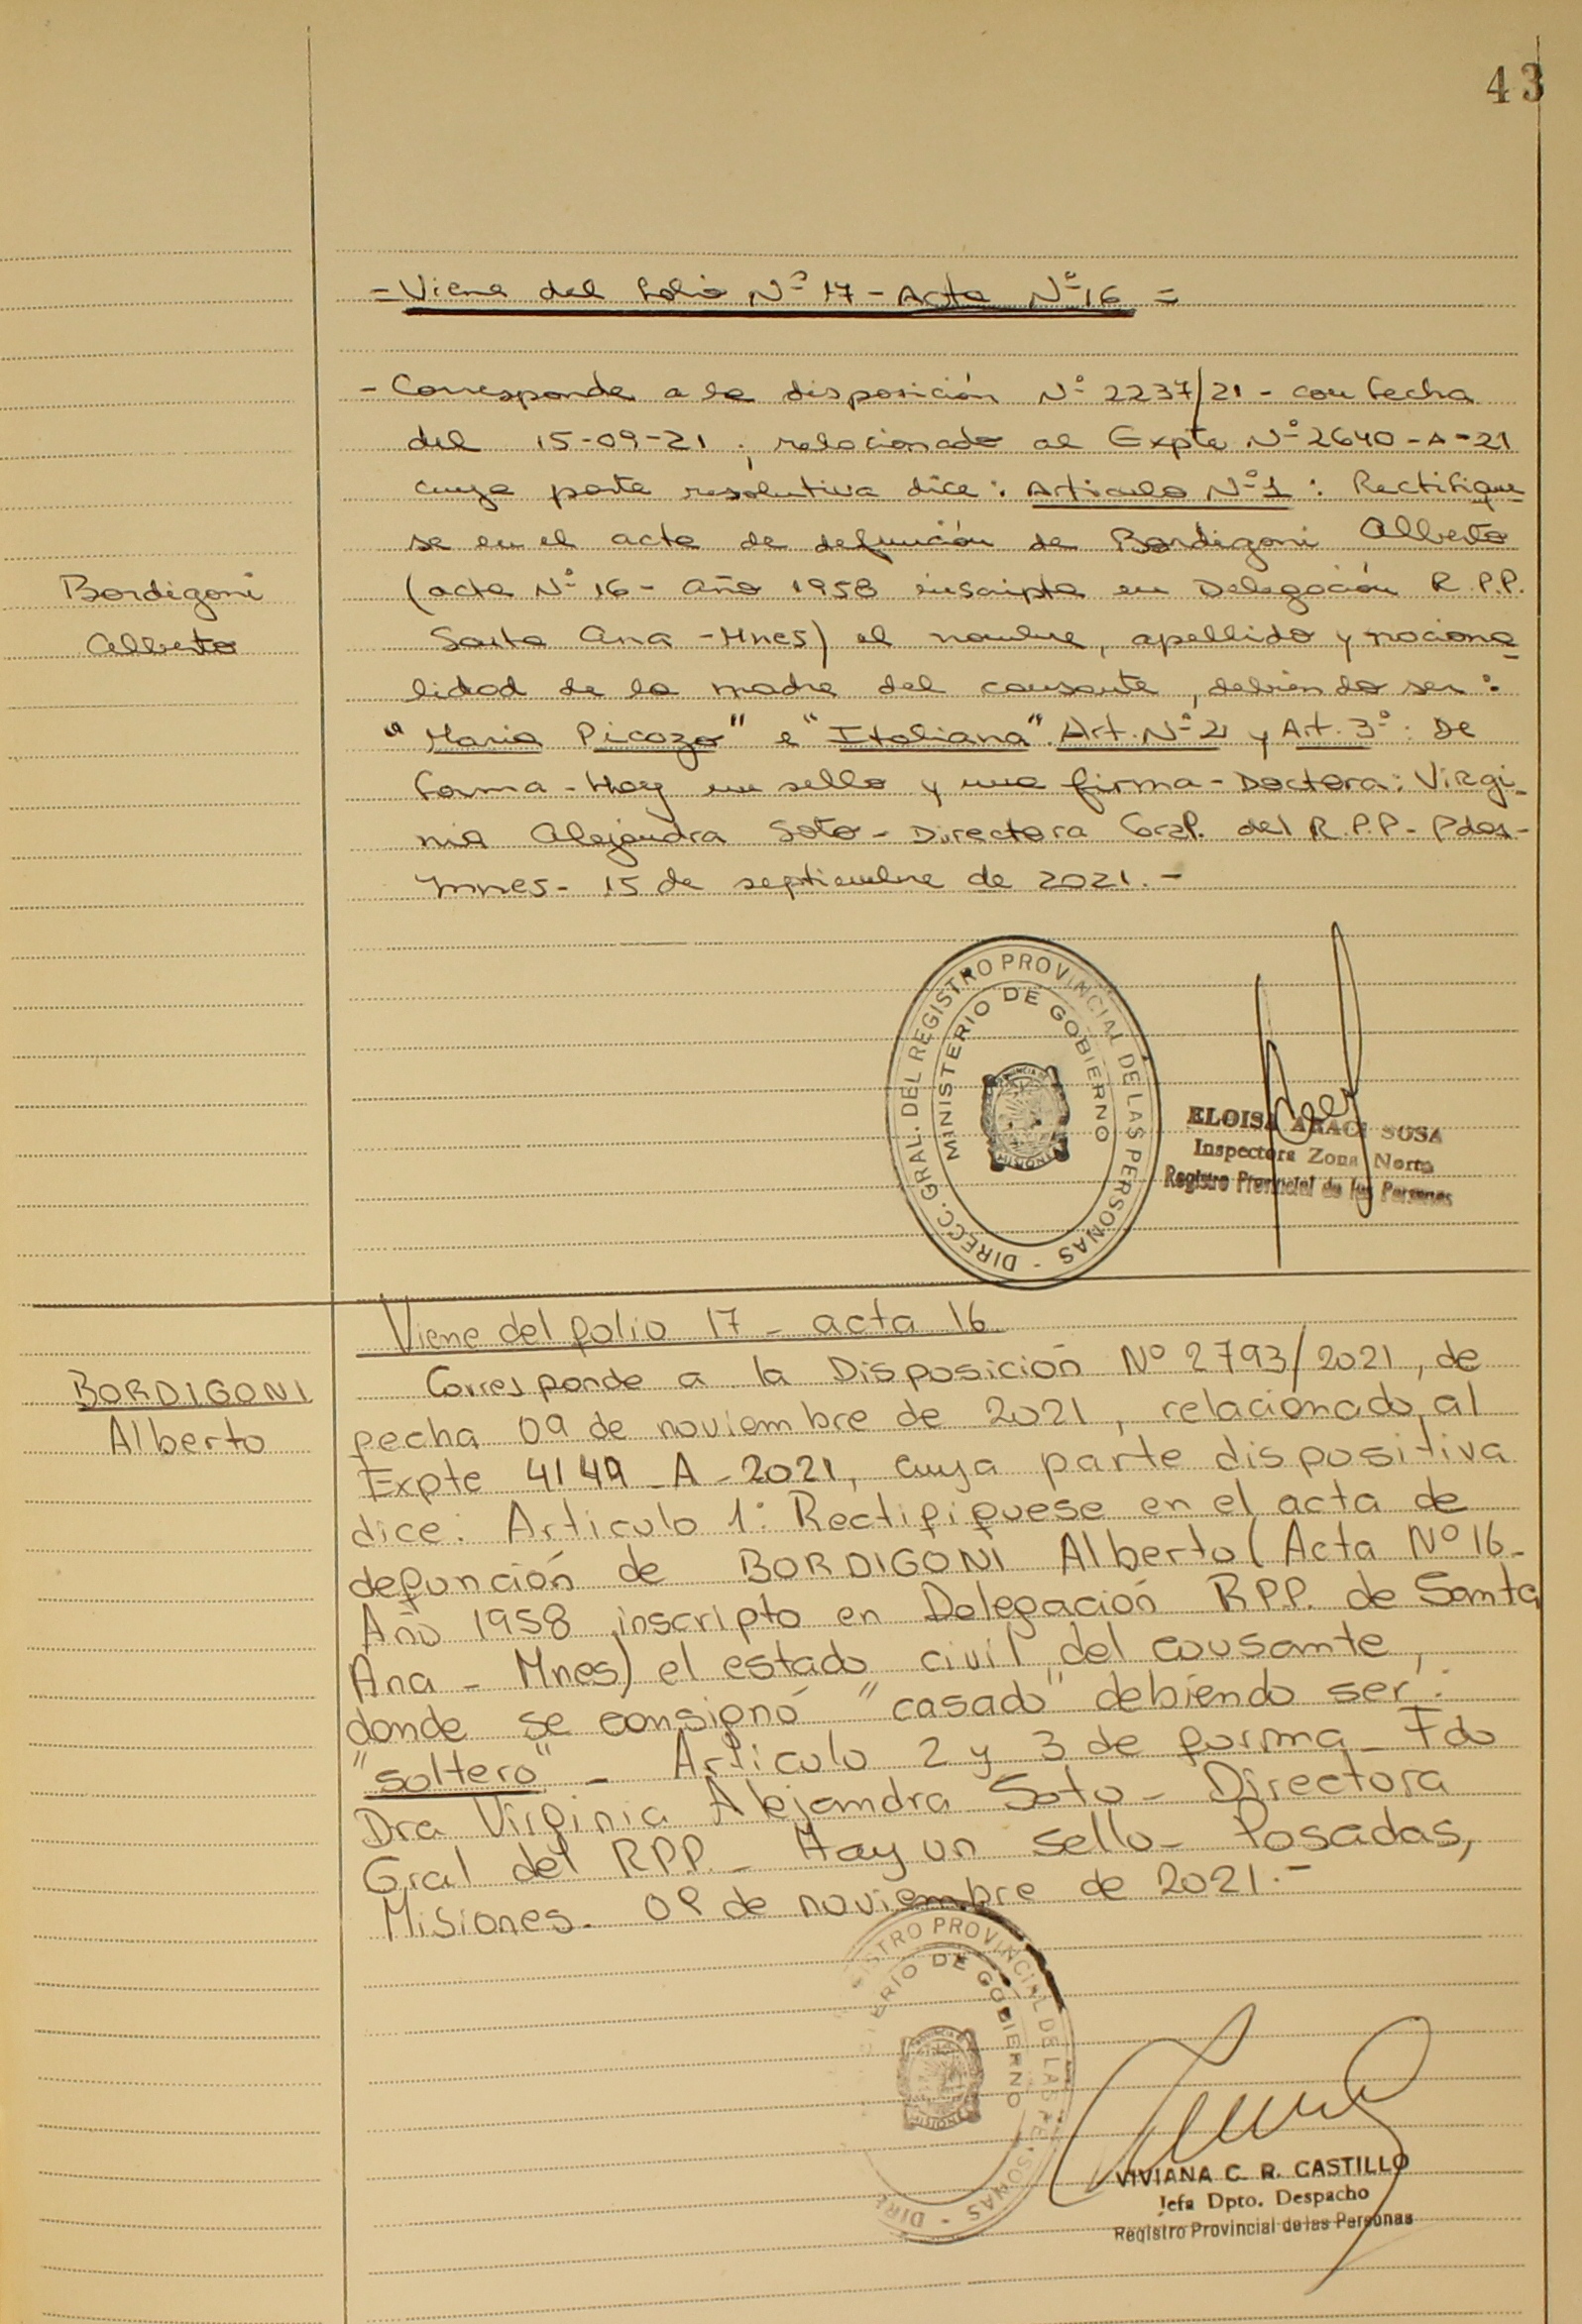 43
= Viene del folio Nº 17 - Acta Nº 16 =
- Corresponde a la disposición Nº 2237/21 - con fecha
del 15-09-21, relacionado al Expte Nº 2640-A-21
cuya parte resolutiva dice: Articulo Nº 1: Rectifique
se en el acta de defunción de Bordigoni Alberto
Bordigoni
Alberto
(acta Nº 16 - Año 1958 inscripta en Delegación R.P.P.
Santa Ana - Mnes) el nombre, apellido y naciona
lidad de la madre del causante, debiendo ser:
"Maria Picozo" e "Italiana". Art. Nº 2 y Art. 3º: De
forma - Hay un sello y una firma - Doctora: Virgi-
nia Alejandra Soto - Directora Gral. del R.P.P. - Pdas -
Mnes - 15 de septiembre de 2021. -
DIRECC. GRAL. DEL REGISTRO PROVINCIAL DE LAS PERSONAS -
MINISTERIO DE GOBIERNO
PROVINCIA DE
MISIONES
ELOISA ARACI SOSA
Inspectora Zona Norte
Registro Provincial de las Personas
Viene del folio 17 - acta 16
BORDIGONI
Alberto
Corresponde a la Disposición Nº 2793/2021, de
fecha 09 de noviembre de 2021, relacionado al
Expte 4149 - A - 2021, cuya parte dispositiva
dice: Articulo 1º: Rectifiquese en el acta de
defunción de BORDIGONI Alberto (Acta Nº 16 -
Año 1958 inscripto en Delegación RPP. de Santa
Ana - Mnes) el estado civil del causante,
donde se consignó "casado" debiendo ser:
"soltero" - Articulo 2 y 3 de forma - Fdo
Dra Virginia Alejandra Soto - Directora
Gral del RPP. - Hay un sello - Posadas,
Misiones. 09 de noviembre de 2021. -
ISTRO PROVINCIAL DE LAS PERSONAS - DIRE
TERIO DE GOBIERNO
PROVINCIA DE
MISIONES
VIVIANA C. R. CASTILLO
Jefa Dpto. Despacho
Registro Provincial de las Personas